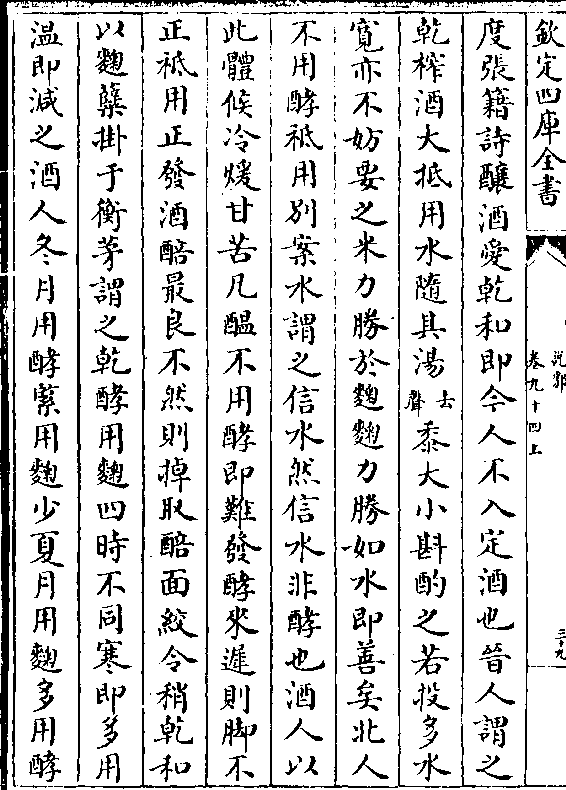 欽定四庫全書
說郛
卷九十四上
三十九
度張籍詩釀酒愛乾和即今人不入定酒也晉人謂之
乾榨酒大抵用水隨其湯去聲黍大小斟酌之若投多水
寛亦不妨要之米力勝於麴麴力勝如水即善矣北人
不用酵祗用刷案水謂之信水然信水非酵也酒人以
此體候冷煖甘苦凡醖不用酵即難發酵來遲則脚不
正祗用正發酒醅最良不然則掉取醅面絞令稍乾和
以麴糵掛于衡茅謂之乾酵用麴四時不同寒即多用
溫即減之酒人冬月用酵緊用麴少夏月用麴多用酵